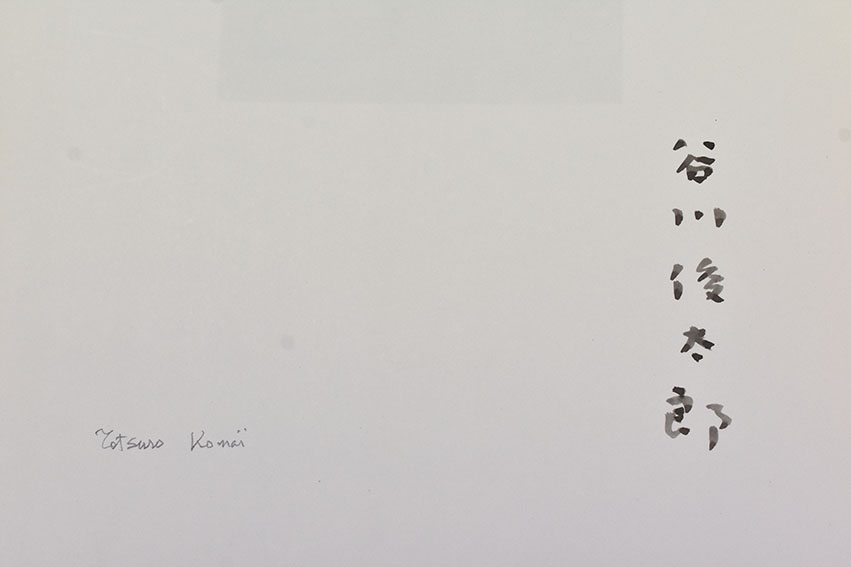 谷川俊太郎
Tetsuro Komaï